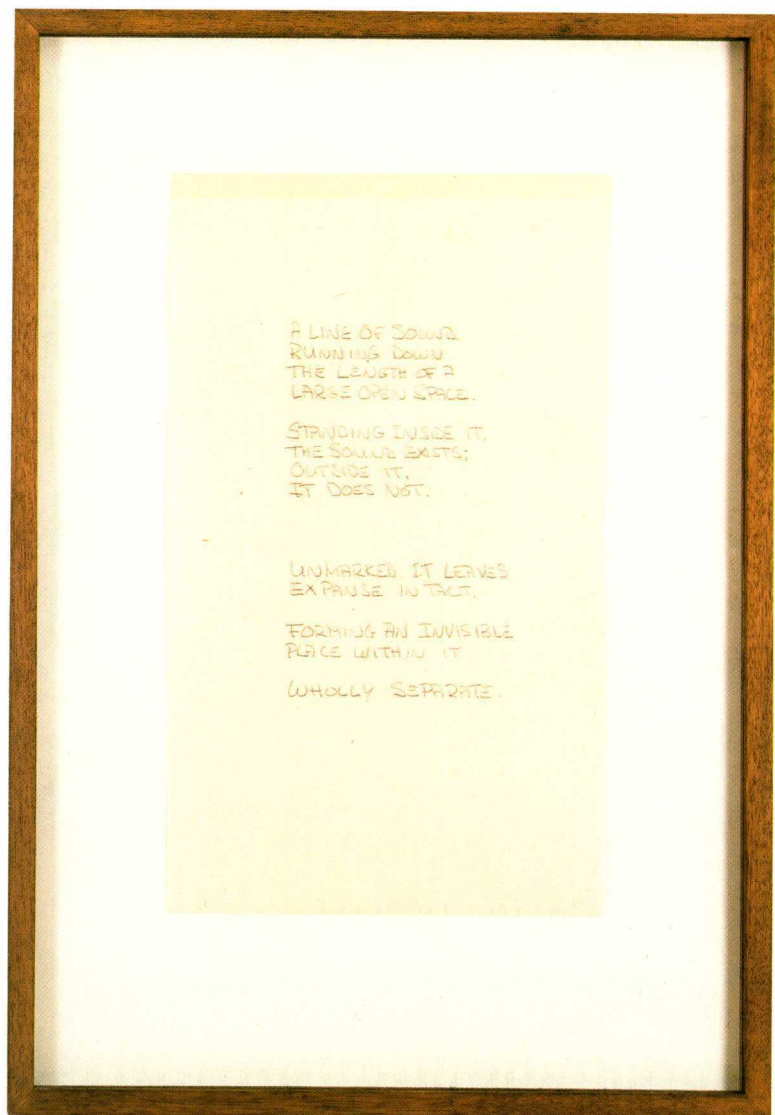 A LINE OF SOUND,
RUNNING DOWN
THE LENGTH OF A
LARGE OPEN SPACE.
STANDING INSIDE IT,
THE SOUND EXISTS;
OUTSIDE IT,
IT DOES NOT.
UNMARKED IT LEAVES
EXPANSE IN TACT.
FORMING AN INVISIBLE
PLACE WITHIN IT
WHOLLY SEPARATE.